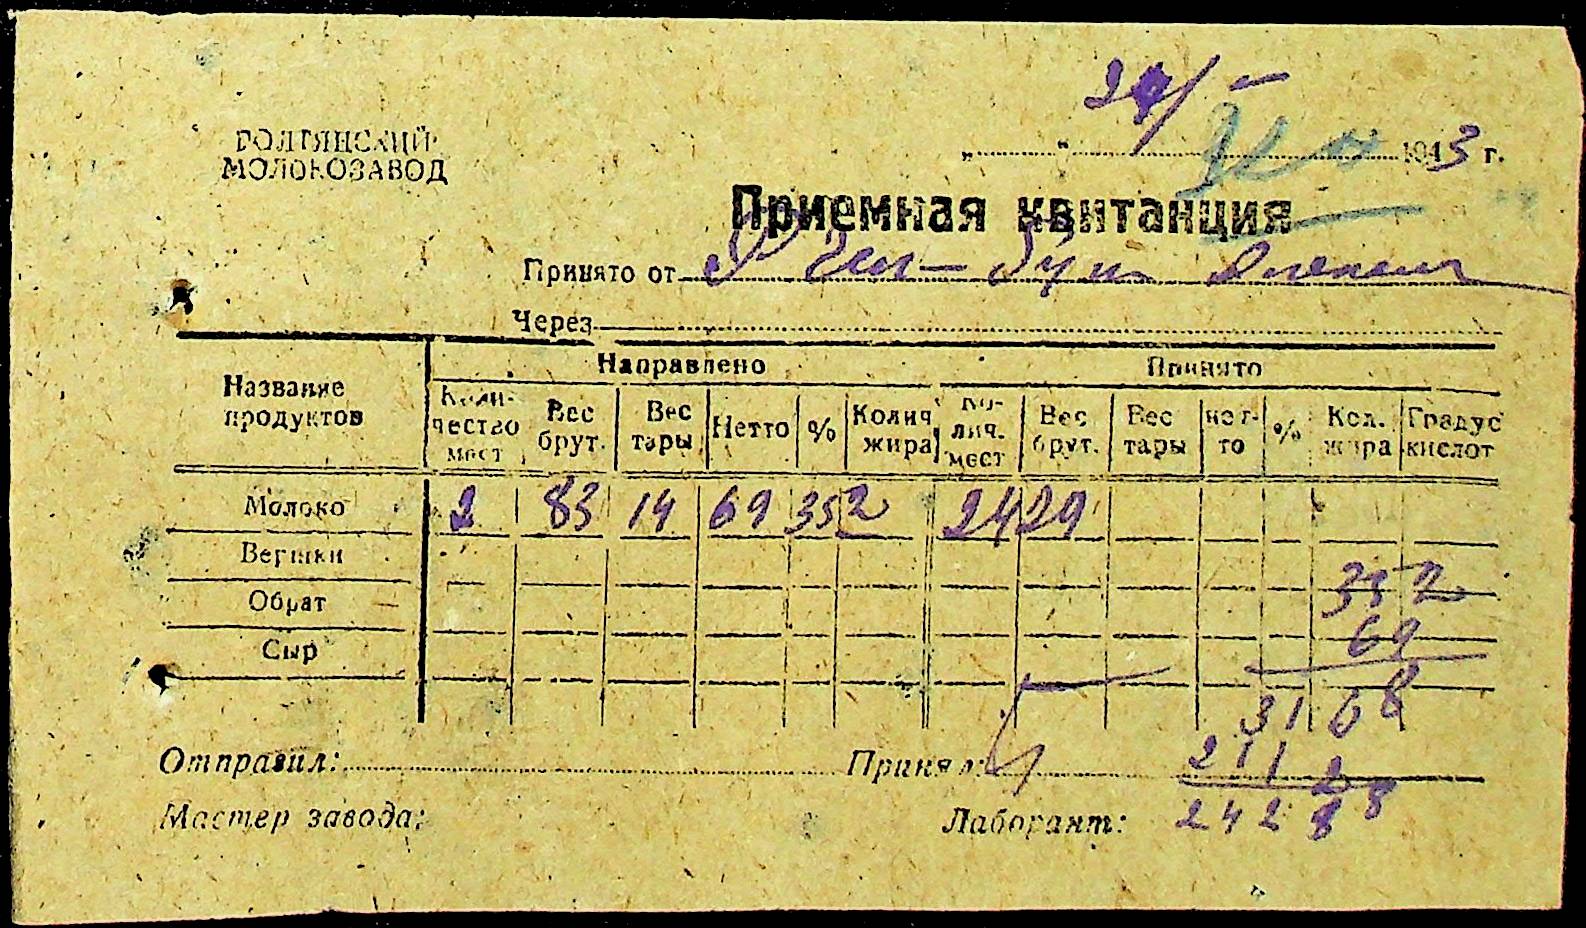 ГОЛТЯНСКИЙ
МОЛОКОЗАВОД
1943 г.
Приемная квитанция
Принято от
Через
Название продуктов
Направлено
Принято
Количество мест
Вес брут.
Вес тары
Нетто
%
Колич. жира
Колич. мест
Вес брут.
Вес тары
нетто
%
Кол. жира
Градус кислот
Молоко 2 83 14 69 352 2429
Вершки
Обрат
Сыр
352
69
3168
2112
24288
Отправил: Принял:
Мастер завода: Лаборант: